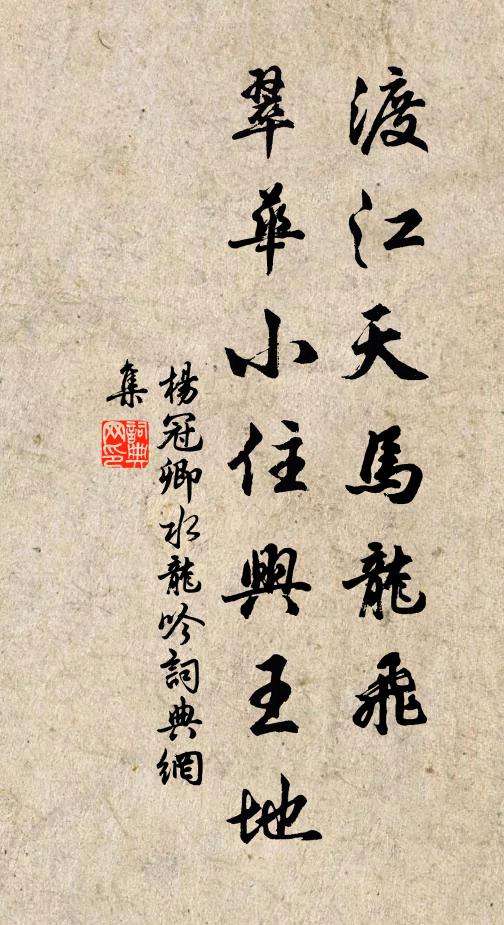 渡江天馬龍飛
翠華小住興王地
楊冠卿水龍吟詞典網
集
詞典
网印